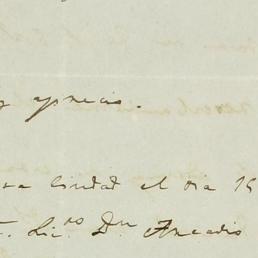 y aprecio.
ciudad el dia 15
Lic.do Dn Arcadio